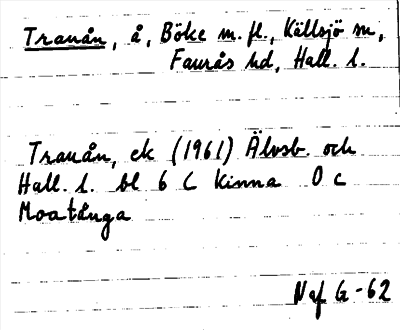 Tranån, å, Böke m. fl., Källsjö sn,
Faurås hd, Hall. l.
Tranån, ek (1961) Älvsb. och
Hall. l. bl 6 C Kinna 0 c
Moatånga
Naf G-62